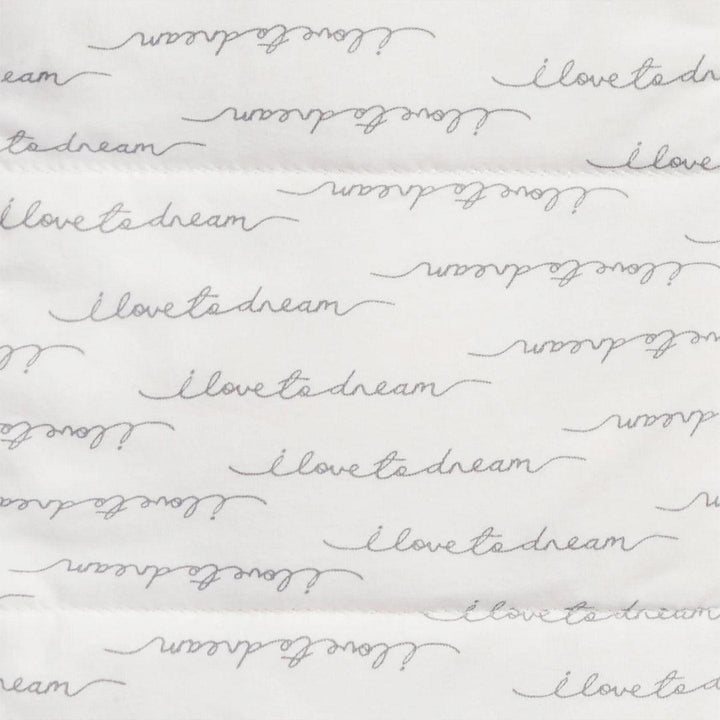 i love to dream
eam
i love to dr
i love to dream
to dream
i love
i love to dream
i love to dream
i love to dream
i love to dream
i love to dream
i l
i love to dream
dream
i love to
i love to dream
i love to drea
i love to dream
i love to dream
i love to dream
i love to dream
ream
i love to d